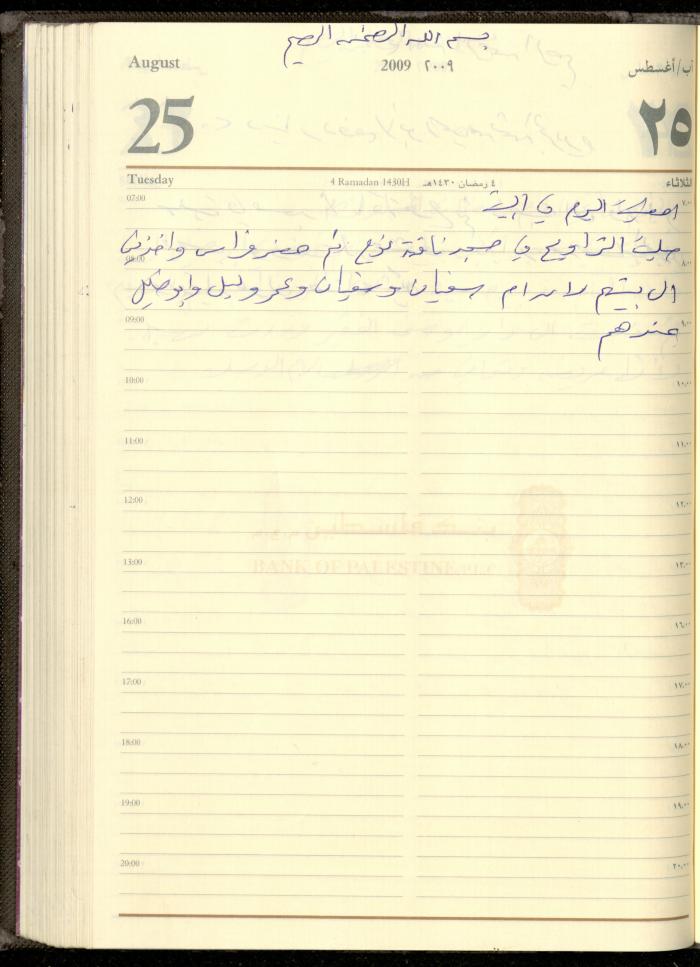 بسم الله الرحمن الرحيم
August 2009 ٢٠٠٩ آب/أغسطس
25 ٢٥
Tuesday 4 Ramadan 1430H ٤ رمضان ١٤٣٠هـ الثلاثاء
07:00 امضيت اليوم في البيت ٧:٠٠
صليت التراويح في مسجد ناقة ثم حضر فراس واخذني
08:00 ٨:٠٠
ال سفيان وسفيان وعمر ونبيل وابو خليل
09:00 عندهم ٩:٠٠
10:00 ١٠:٠٠
11:00 ١١:٠٠
12:00 ١٢:٠٠
BANK OF PALESTINE P.L.C
13:00 ١٣:٠٠
16:00 ١٦:٠٠
17:00 ١٧:٠٠
18:00 ١٨:٠٠
19:00 ١٩:٠٠
20:00 ٢٠:٠٠